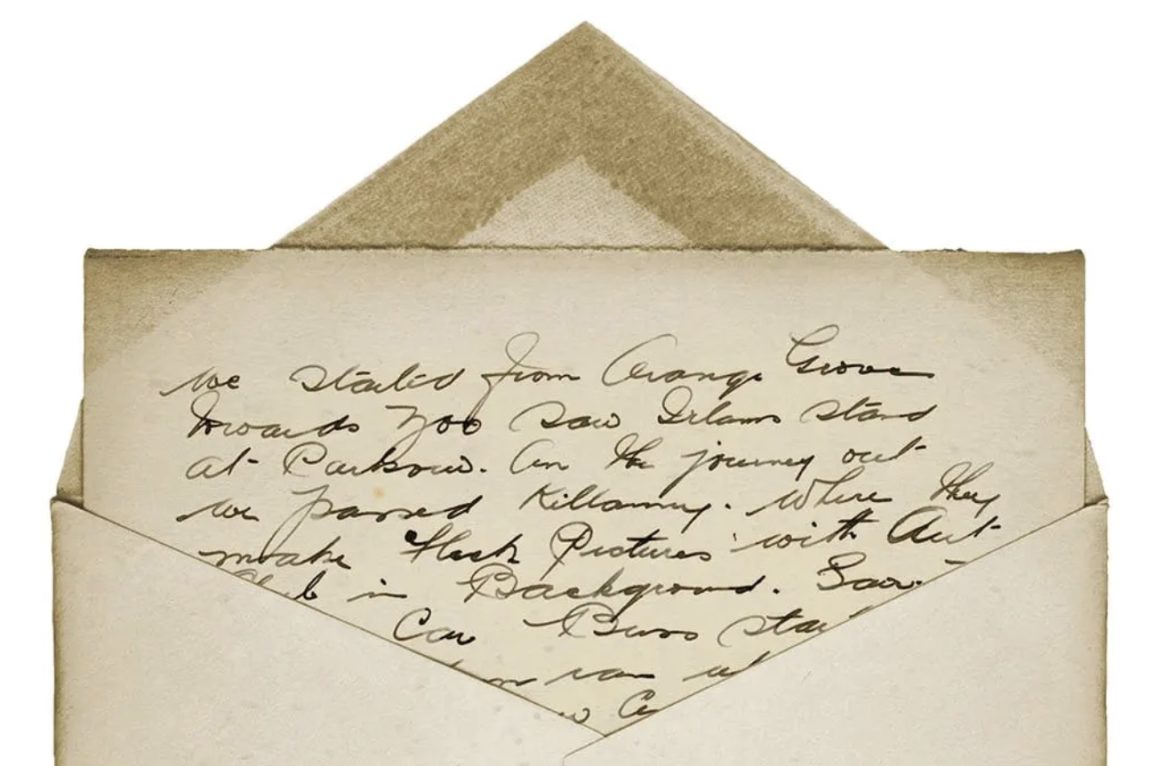 we started from Orange Grove
towards Zoo saw Irlams stand
at Parkview. On the journey out
we passed Killarney. Where they
make Flesh Pictures with Aut
Club in Background. Saw
Car Buss sta
ran